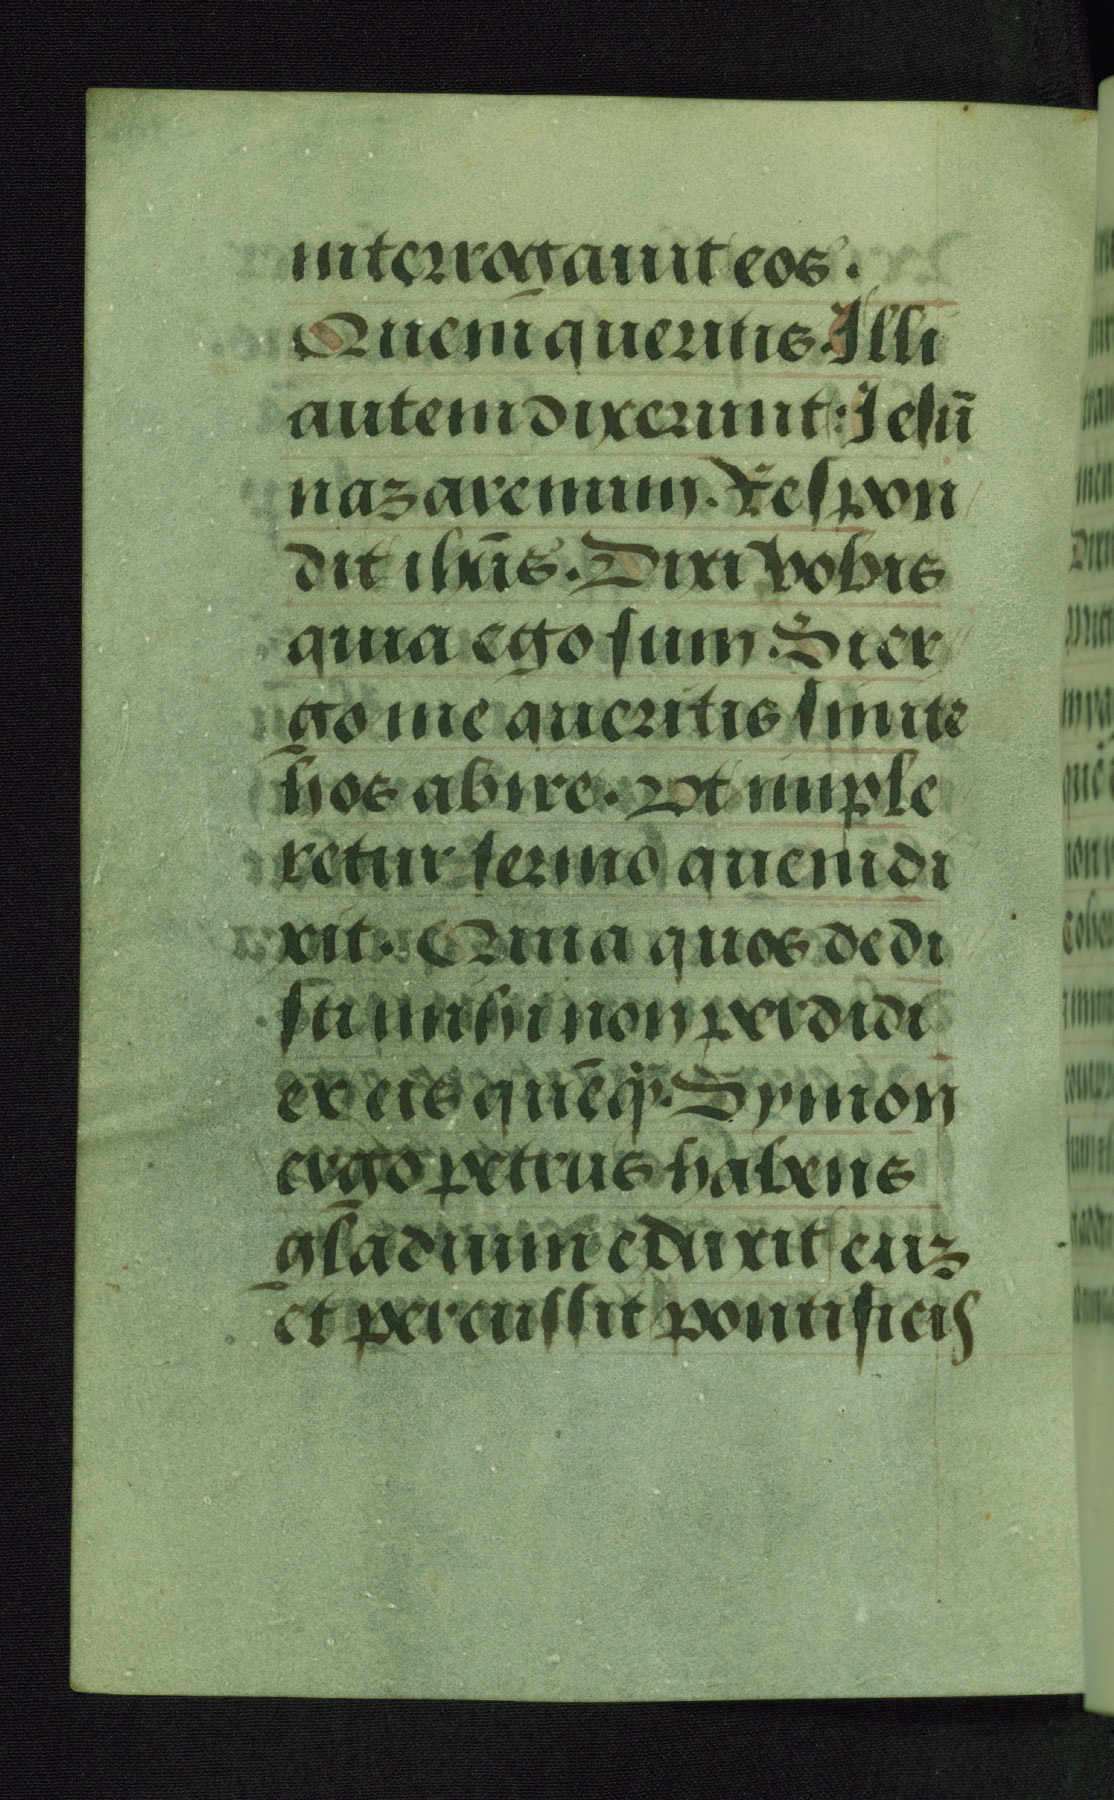 interrogauit eos.
Quem queritis. Illi
autem dixerunt: Jesū
nazarenum. Respon
dit ihūs. Dixi vobis
quia ego sum. Si er
go me queritis sinite
hos abire. Vt imple
retur sermo quem di
xit. Quia quos dedi
sti mihi non perdidi
ex eis quēq̄. Symon
ergo petrus habens
gladium eduxit euz
et percussit pontificis